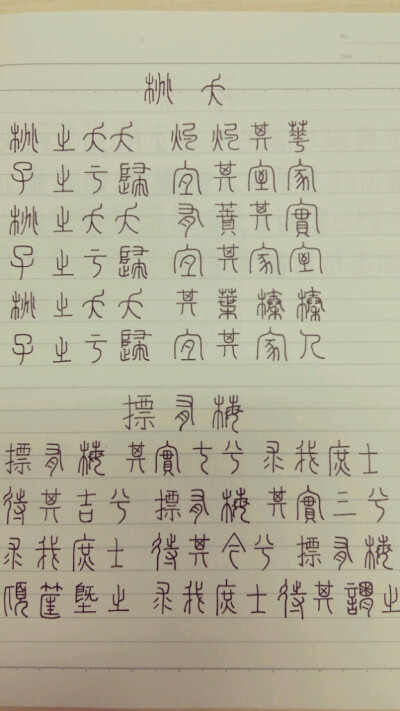 桃夭
桃之夭夭 灼灼其華
子之于歸 宜其室家
桃之夭夭 有蕡其實
子之于歸 宜其家室
桃之夭夭 其葉蓁蓁
子之于歸 宜其家人
摽有梅
摽有梅 其實七兮 求我庶士
待其吉兮 摽有梅 其實三兮
求我庶士 待其今兮 摽有梅
頃筐塈之 求我庶士 待其謂之